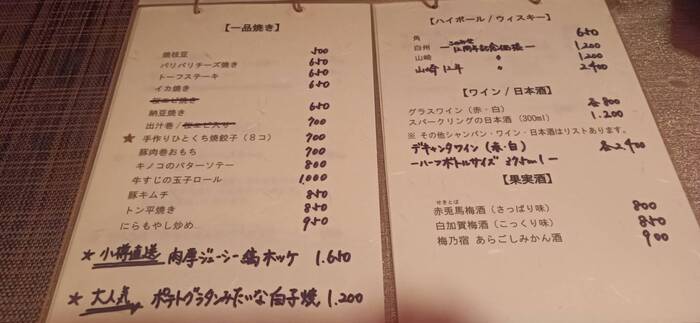 【一品焼き】
焼枝豆 500
パリパリチーズ焼き 650
トーフステーキ 650
イカ焼き 650
桜エビ焼き
納豆焼き 650
出汁巻/桜エビ入り 700
★ 手作りひとくち焼餃子(8コ) 700
豚肉巻おもち 700
キノコのバターソテー 800
牛すじの玉子ロール 1,000
豚キムチ 850
トン平焼き 850
にらもやし炒め 950
★ 小樽直送 肉厚ジューシー縞ホッケ 1.650
★ 大人気 ポテトグラタンみたいな白子焼 1.200
【ハイボール/ウィスキー】
角 650
白州 12周年記念価格 1,200
山崎 〃 1,200
山崎12年 〃 2,400
【ワイン/日本酒】
グラスワイン(赤・白) 各800
スパークリングの日本酒(300ml) 1.200
※ その他シャンパン・ワイン・日本酒はリストあります。
デキャンタワイン(赤・白) 各2,400
ーハーフボトルサイズ 375mlー
【果実酒】
せきとば
赤兎馬梅酒(さっぱり味) 800
白加賀梅酒(こっくり味) 850
梅乃宿 あらごしみかん酒 900